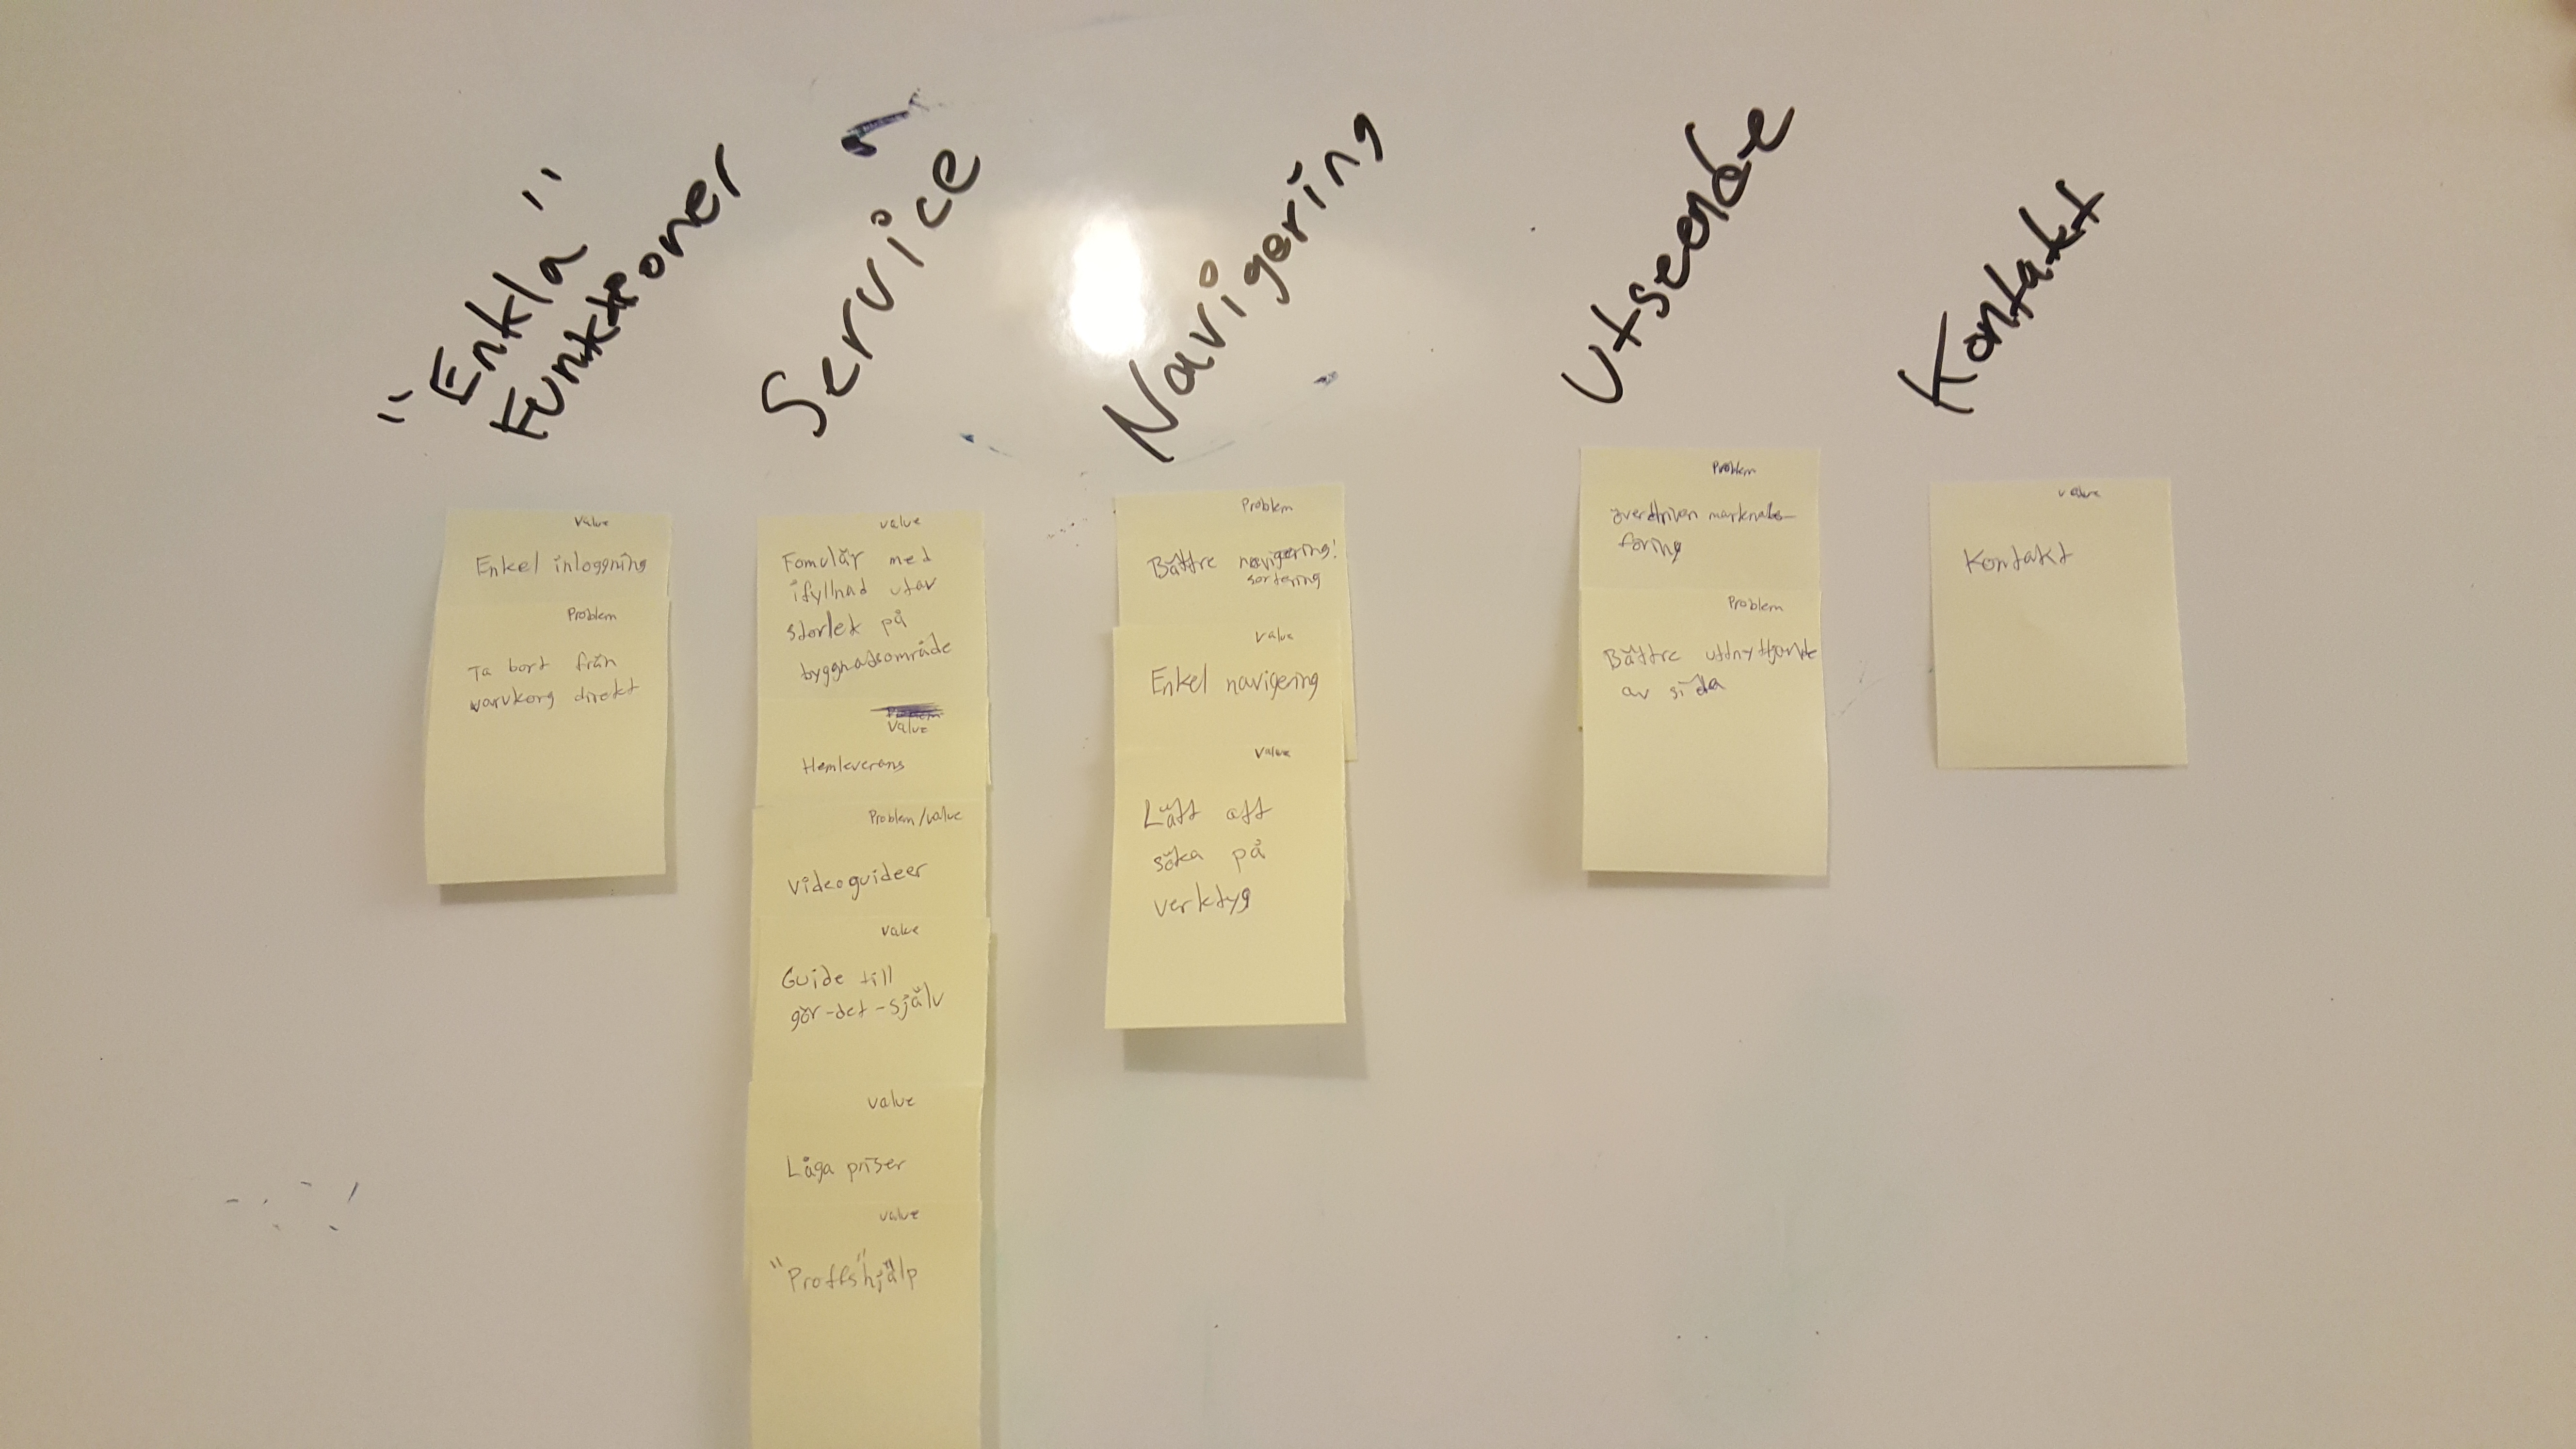 "Enkla"
Funktioner
Service
Navigering
Utseende
Kontakt
Value
Enkel inloggning
Problem
Ta bort från
varukorg direkt
value
Fomulär med
ifyllnad utav
storlek på
byggnadsområde
Value
Hemleverans
Problem/value
videoguideer
value
Guide till
gör-det-själv
value
Låga priser
value
"Proffs"hjälp
Problem
Bättre navigering!
sortering
Value
Enkel navigering
Value
Lätt att
söka på
verktyg
Problem
överdriven marknads-
föring
Problem
Bättre uttnyttjande
av sida
value
Kontakt